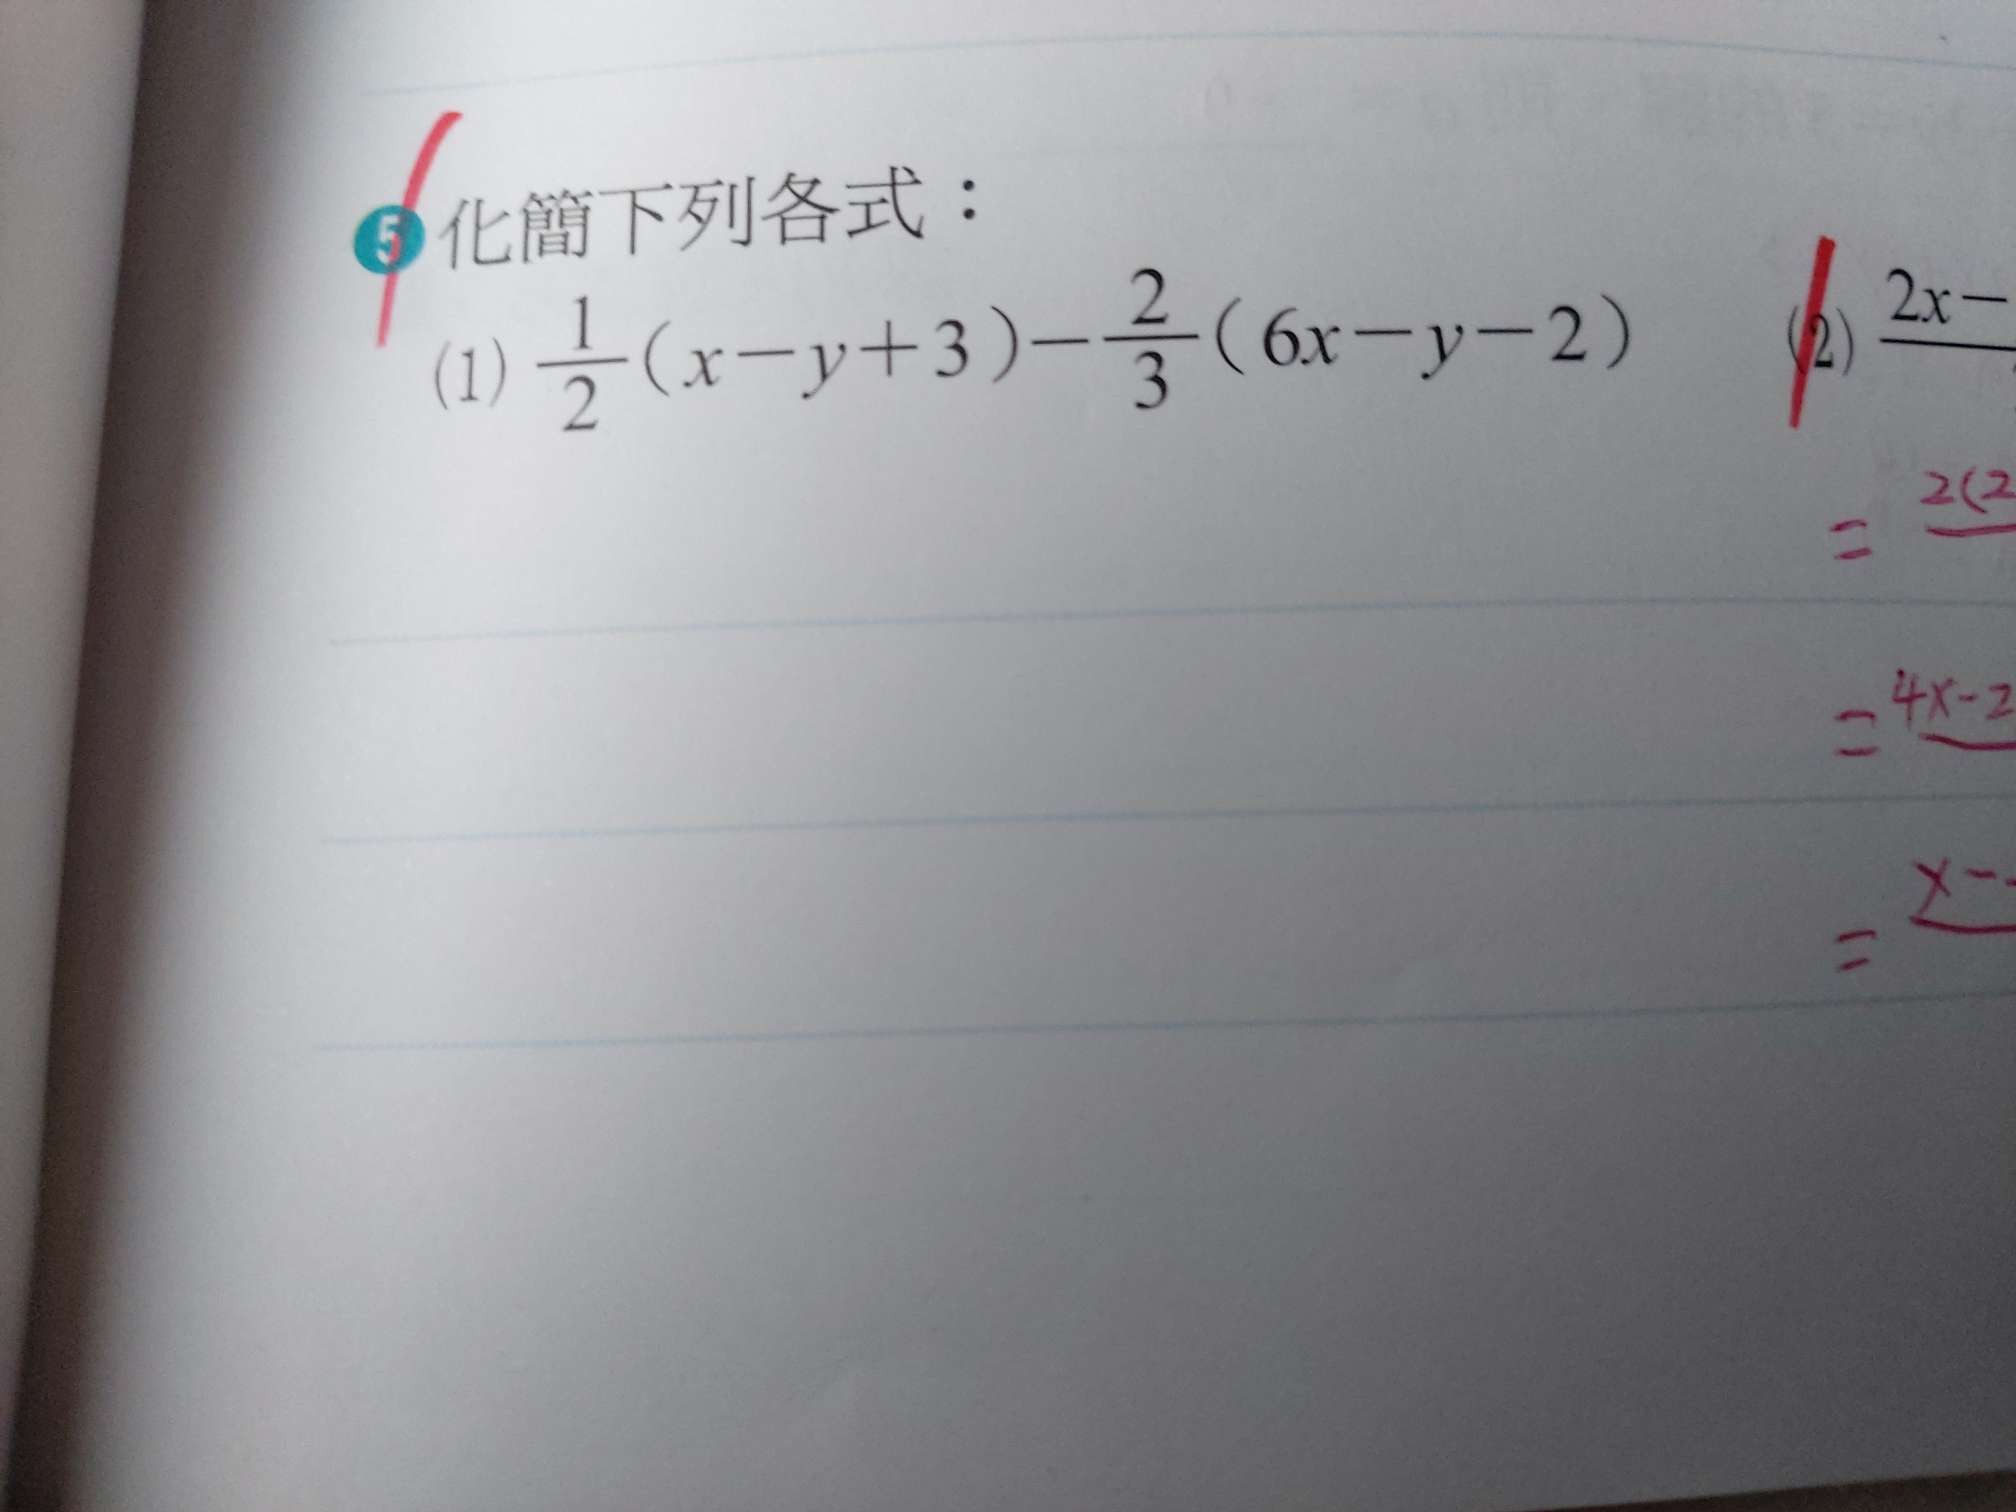 5 化簡下列各式：
(1) 1/2(x−y+3)−2/3(6x−y−2)
(2) 2x−
= 2(2
= 4x-2
= x-